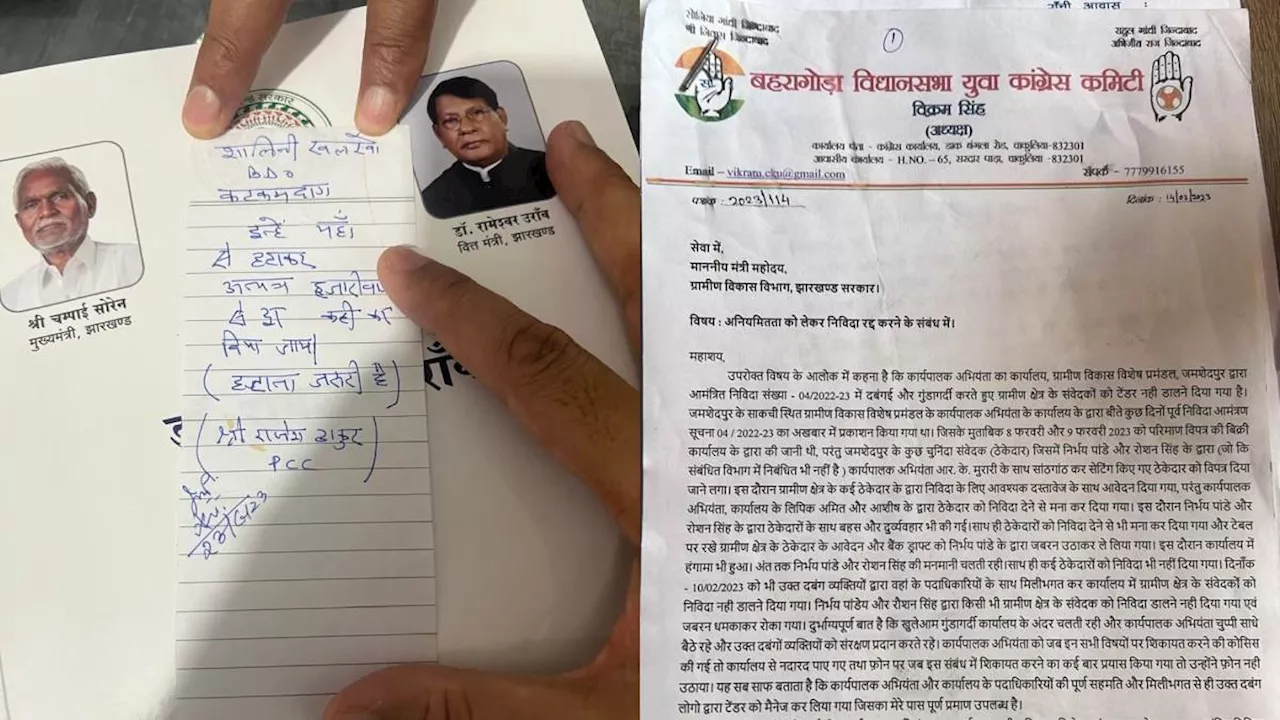 शालिनी खलखो
BDO
कटकमदाग
इन्हें यहाँ
से हटाकर
अन्यत्र हजारीबाग
से कहीं
किया जाय।
(हटाना जरुरी है)
(श्री राजेश ठाकुर
PCC)
सरकार
श्री चम्पाई सोरेन
मुख्यमंत्री, झारखण्ड
डॉ. रामेश्वर उराँव
वित्त मंत्री, झारखण्ड
राँची आवास :
सोनिया गांधी जिन्दाबाद
श्री निवास जिन्दाबाद
1
राहुल गांधी जिन्दाबाद
अभिजीत राज जिन्दाबाद
बहरागोड़ा विधानसभा युवा कांग्रेस कमिटी
विक्रम सिंह
(अध्यक्ष)
कार्यालय पता - कांग्रेस कार्यालय, डाक बंगला रोड, चाकुलिया-832301
आवासीय कार्यालय - H.NO. - 65, सरदार पाड़ा, चाकुलिया -832301
Email – vikram.cku@gmail.com
संपर्क - 7779916155
पत्रांक : 2023/114
दिनांक : 14/02/2023
सेवा में,
माननीय मंत्री महोदय,
ग्रामीण विकास विभाग, झारखण्ड सरकार।
विषय : अनियमितता को लेकर निविदा रद्द करने के संबंध में।
महाशय,
उपरोक्त विषय के आलोक में कहना है कि कार्यपालक अभियंता का कार्यालय, ग्रामीण विकास विशेष प्रमंडल, जमशेदपुर द्वारा
आमंत्रित निविदा संख्या - 04/2022-23 में दबंगई और गुंडागर्दी करते हुए ग्रामीण क्षेत्र के संवेदकों को टेंडर नही डालने दिया गया है।
जमशेदपुर के साकची स्थित ग्रामीण विकास विशेष प्रमंडल के कार्यपालक अभियंता के कार्यालय के द्वारा बीते कुछ दिनों पूर्व निविदा आमंत्रण
सूचना 04 / 2022-23 का अखबार में प्रकाशन किया गया था। जिसके मुताबिक 8 फरवरी और 9 फरवरी 2023 को परिमाण विपत्र की बिक्री
कार्यालय के द्वारा की जानी थी, परंतु जमशेदपुर के कुछ चुनिंदा संवेदक (ठेकेदार) जिसमें निर्भय पांडे और रोशन सिंह के द्वारा (जो कि
संबंधित विभाग में निबंधित भी नहीं है ) कार्यपालक अभियंता आर. के. मुरारी के साथ सांठगांठ कर सेटिंग किए गए ठेकेदार को विपत्र दिया
जाने लगा। इस दौरान ग्रामीण क्षेत्र के कई ठेकेदार के द्वारा निविदा के लिए आवश्यक दस्तावेज के साथ आवेदन दिया गया, परंतु कार्यपालक
अभियंता, कार्यालय के लिपिक अमित और आशीष के द्वारा ठेकेदार को निविदा देने से मना कर दिया गया। इस दौरान निर्भय पांडे और
रोशन सिंह के द्वारा ठेकेदारों के साथ बहस और दुर्व्यवहार भी की गई।साथ ही ठेकेदारों को निविदा देने से भी मना कर दिया गया और टेबल
पर रखे ग्रामीण क्षेत्र के ठेकेदार के आवेदन और बैंक ड्राफ्ट को निर्भय पांडे के द्वारा जबरन उठाकर ले लिया गया। इस दौरान कार्यालय में
हंगामा भी हुआ। अंत तक निर्भय पांडे और रोशन सिंह की मनमानी चलती रही।साथ ही कई ठेकेदारों को निविदा भी नहीं दिया गया। दिनाँक
- 10/02/2023 को भी उक्त दबंग व्यक्तियों द्वारा वहां के पदाधिकारियों के साथ मिलीभगत कर कार्यालय में ग्रामीण क्षेत्र के संवेदकों को
निविदा नही डालने दिया गया। निर्भय पांडेय और रौशन सिंह द्वारा किसी भी ग्रामीण क्षेत्र के संवेदक को निविदा डालने नही दिया गया एवं
जबरन धमकाकर रोका गया। दुर्भाग्यपूर्ण बात है कि खुलेआम गुंडागर्दी कार्यालय के अंदर चलती रही और कार्यपालक अभियंता चुप्पी साधे
बैठे रहे और उक्त दबंगों व्यक्तियों को संरक्षण प्रदान करते रहे। कार्यपालक अभियंता को जब इन सभी विषयों पर शिकायत करने की कोसिस
की गई तो कार्यालय से नदारद पाए गए तथा फ़ोन पर जब इस संबंध में शिकायत करने का कई बार प्रयास किया गया तो उन्होंने फ़ोन नही
उठाया। यह सब साफ बताता है कि कार्यपालक अभियंता और कार्यालय के पदाधिकारियों की पूर्ण सहमति और मिलीभगत से ही उक्त दबंग
लोगो द्वारा टेंडर को मैनेज कर लिया गया जिसका मेरे पास पूर्ण प्रमाण उपलब्ध है।